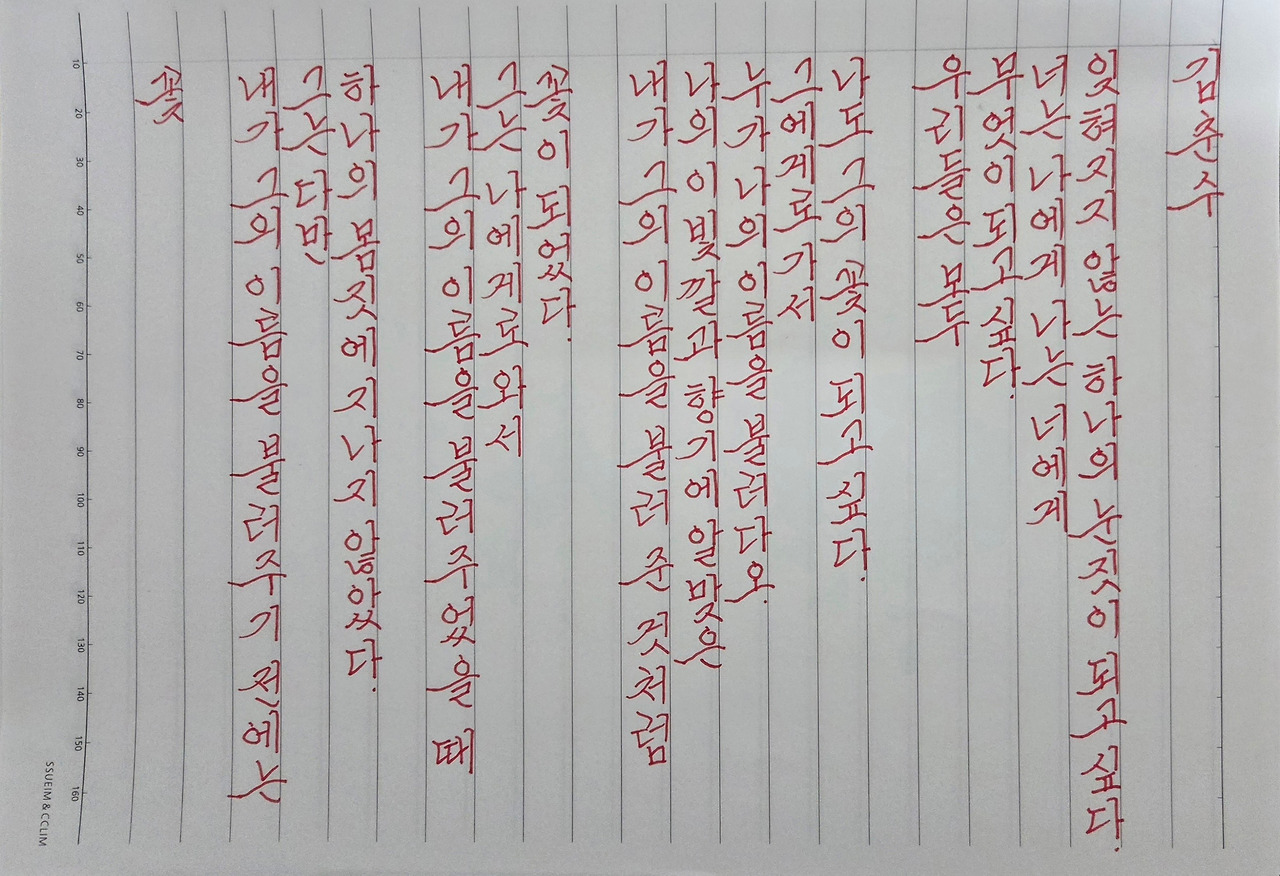 꽃
내가 그의 이름을 불러주기 전에는
그는 다만
하나의 몸짓에 지나지 않았다.
내가 그의 이름을 불러주었을 때
그는 나에게로 와서
꽃이 되었다.
내가 그의 이름을 불러 준 것처럼
나의 이 빛깔과 향기에 알맞은
누가 나의 이름을 불러 다오.
그에게로 가서
나도 그의 꽃이 되고 싶다.
우리들은 모두
무엇이 되고 싶다.
너는 나에게 나는 너에게
잊혀지지 않는 하나의 눈짓이 되고 싶다.
김춘수
10 20 30 40 50 60 70 80 90 100 110 120 130 140 150 160
SSUEIM & CCLIM